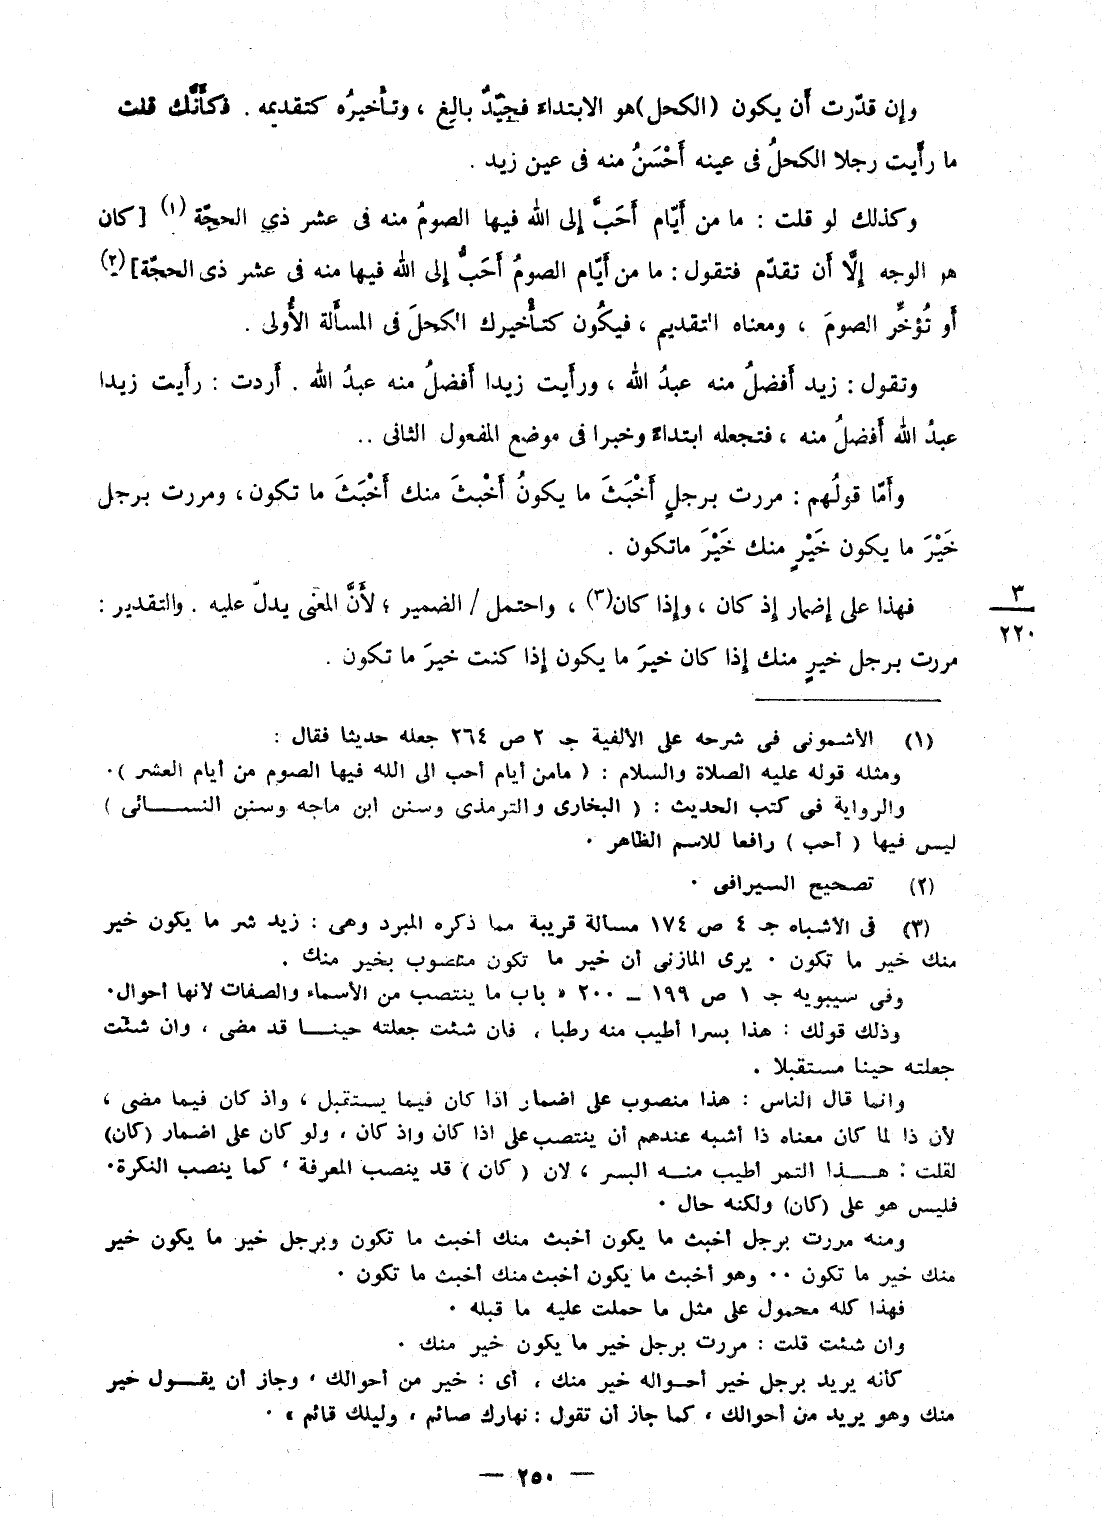 وإن قدّرت أَن يكون (الكحل) هو الابتداءَ فجيّدٌ بالِغ ، وتأخيرُه كتقديمه . فكأَنَّك قلت
ما رأَيت رجلا الكحلُ فى عينه أَحْسَنُ منه فى عين زيد .
وكذلك لو قلت : ما من أَيّام أَحَبَّ إلى الله فيها الصومُ منه فى عشر ذي الحجّة (١) [ كان
هو الوجه إلَّا أَن تقدّم فتقول : ما من أَيّام الصومُ أَحَبُّ إلى الله فيها منه فى عشر ذى الحجّة] (٢)
أَو تُؤخِّر الصومَ ، ومعناه التقديم ، فيكُون كتأْخيرك الكحلَ فى المسأَلة الأُولى .
وتقول : زيد أَفضلُ منه عبدُ الله ، ورأَيت زيدا أَفضلُ منه عبدُ الله . أَردت : رأَيت زيدا
عبدُ الله أَفضلُ منه ، فتجعله ابتداءً وخبرا فى موضع المفعول الثانى ..
وأَمّا قولُهم : مررت برجلٍ أَخْبَثَ ما يكونُ أَخْبثَ منك أَخْبَثَ ما تكون ، ومررت برجل
خَيْرَ ما يكون خَيْرٍ منك خَيْرَ ماتكون .
فهذا على إضمار إذ كان ، وإذا كان (٣) ، واحتمل / الضمير ؛ لأَنَّ المعْنى يدلّ عليه . والتقدير :
٣
٢٢٠
مررت برجل خيرٍ منك إذا كان خيرَ ما يكون إذا كنت خيرَ ما تكون .
(١) الأشمونى فى شرحه على الألفية جـ ٢ ص ٢٦٤ جعله حديثا فقال :
ومثله قوله عليه الصلاة والسلام : ( مامن أيام أحب الى الله فيها الصوم من أيام العشر ) ٠
والرواية فى كتب الحديث : ( البخارى والترمذى وسنن ابن ماجه وسنن النسـائى )
ليس فيها ( أحب ) رافعا للاسم الظاهر ٠
(٢) تصحيح السيرافى ٠
(٣) فى الأشباه جـ ٤ ص ١٧٤ مسألة قريبة مما ذكره المبرد وهى : زيد شر ما يكون خير
منك خير ما تكون ٠ يرى المازنى أن خير ما تكون منصوب بخير منك .
وفى سيبويه جـ ١ ص ١٩٩ ـ ٢٠٠ « باب ما ينتصب من الأسماء والصفات لأنها أحوال٠
وذلك قولك : هذا بسرا أطيب منه رطبا ، فان شئت جعلته حينـا قد مضى ، وان شئت
جعلته حينا مستقبلا .
وانما قال الناس : هذا منصوب على اضمار اذا كان فيما يستقبل ، واذ كان فيما مضى ،
لأن ذا لما كان معناه ذا أشبه عندهم أن ينتصب على اذا كان واذ كان ، ولو كان على اضمار (كان)
لقلت : هـذا التمر أطيب منـه البسر ، لان ( كان ) قد ينصب المعرفة ، كما ينصب النكرة٠
فليس هو على (كان) ولكنه حال ٠
ومنه مررت برجل أخبث ما يكون أخبث منك أخبث ما تكون وبرجل خير ما يكون خير
منك خير ما تكون ٠٠ وهو أخبث ما يكون أخبث منك أخبث ما تكون ٠
فهذا كله محمول على مثل ما حملت عليه ما قبله ٠
وان شئت قلت : مررت برجل خير ما يكون خير منك ٠
كأنه يريد برجل خير أحـواله خير منك ، أى : خير من أحوالك ، وجاز أن يقـول خير
منك وهو يريد من أحوالك ، كما جاز أن تقول : نهارك صائم ، وليلك قائم » ٠
— ٢٥٠ —